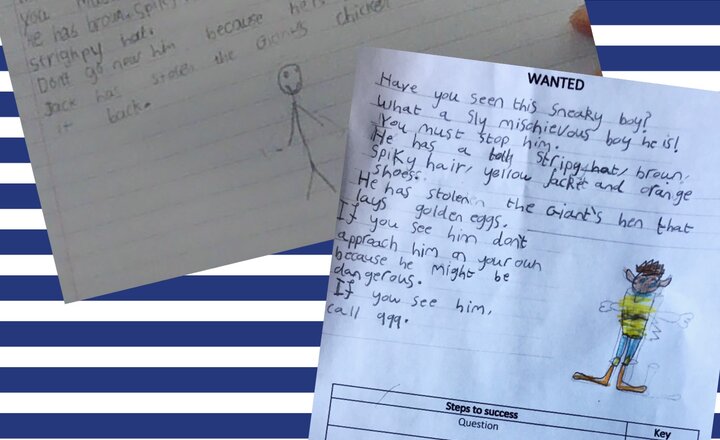 you
He has brown, spiky
strighpy hat.
Dont go near him because he is
Jack has stolen the Giants chicken
it back.
WANTED
Have you seen this sneaky boy?
What a sly mischievous boy he is!
You must stop him.
He has a stripy hat, brown,
spiky hair, yellow jacket and orange
shoes.
He has stolen the Giant's hen that
lays golden eggs.
If you see him don't
approach him on your own
because he might be
dangerous.
If you see him,
call 999.
Steps to success
Question
Key